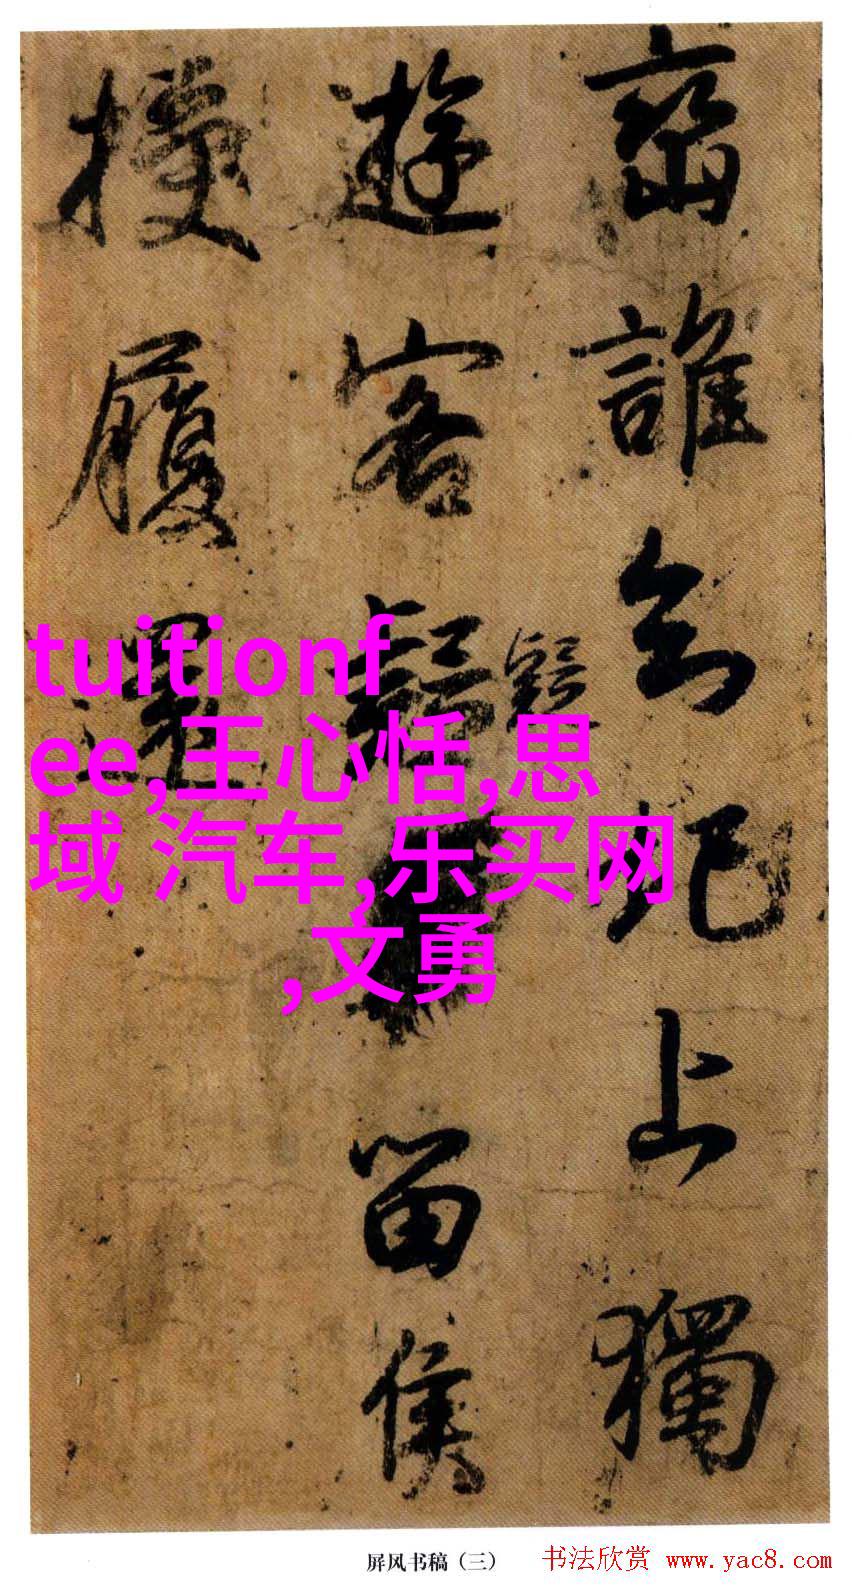 誰圯上獨
遊客
留侯
履還
tuitionf
ee,王心恬,思
域 汽车,乐买网
,文勇
屏风书稿（三）
书法欣赏 www.yac8.com